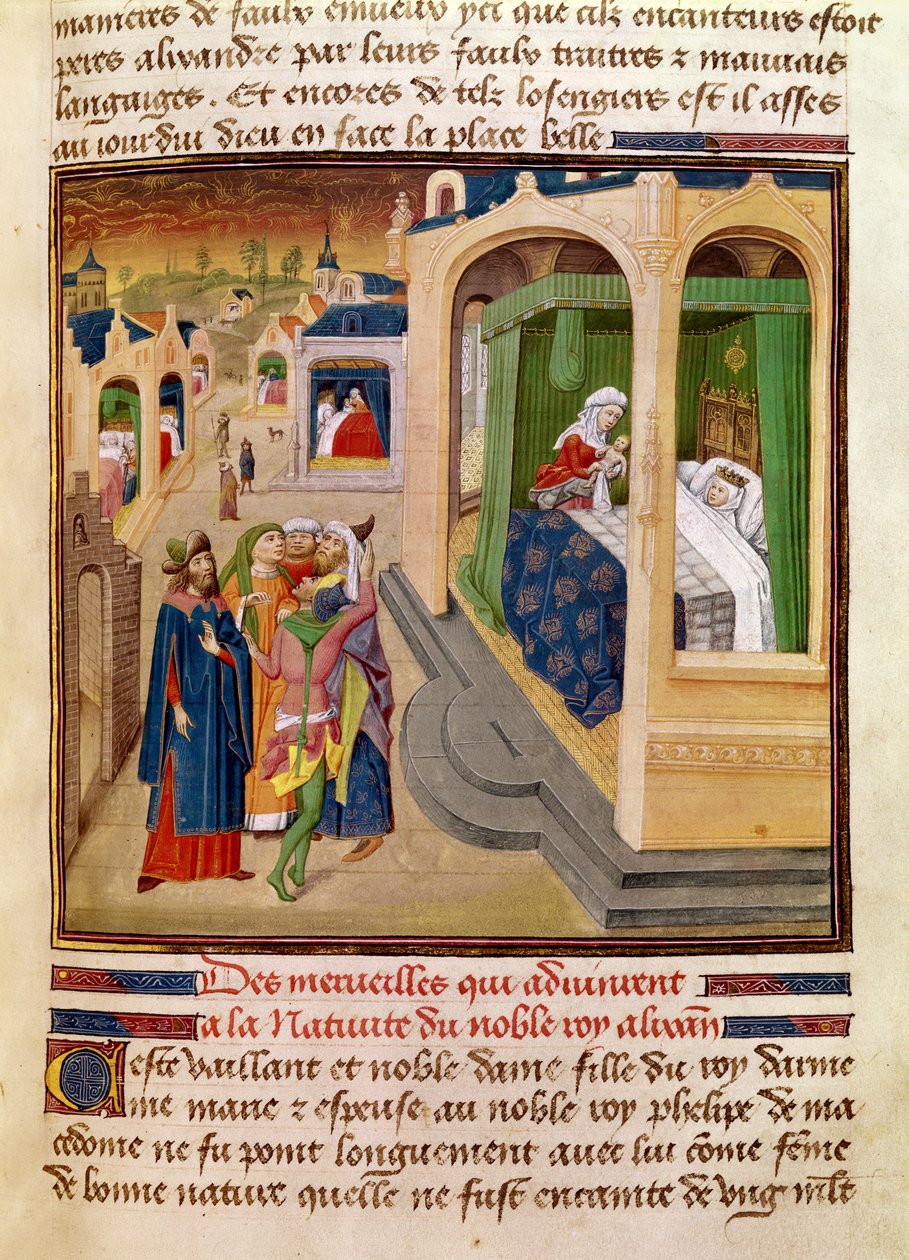 manieres de faulx enuieux yci que cilz encanteurs estoiẽt
peres alixandre par leurs faulx traitres ⁊ mauuais
langaiges. Et encores de telz losengiers est il asses
au iourdui dieu en face la place belle
Des merueilles qui aduinrent
a la Natiuite du noble roy alixãñ
Ceste vaillant et noble dame fille du roy darme
nie mariee ⁊ espeuse au noble roy phelipe de ma
cedonie ne fu point longuement auec lui cõme fẽme
de bonne nature quelle ne fust encainte de vng